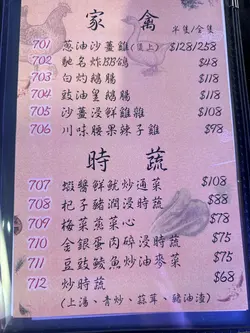 家禽
半隻/全隻
701 葱油沙薑雞(隻上) $128/258
702 馳名炸BB鴿 $48
703 白灼鵝腸 $118
704 豉油皇鵝腸 $118
705 沙薑浸鮮雞雜 $108
706 川味腰果辣子雞 $98
時蔬
707 蝦醬鮮魷炒通菜 $108
708 杞子豬潤浸時蔬 $88
709 梅菜蒸菜心 $78
710 金銀蛋肉碎浸時蔬 $75
711 豆豉鯪魚炒油麥菜 $75
712 炒時蔬 $68
(上湯、青炒、蒜茸、豬油渣)